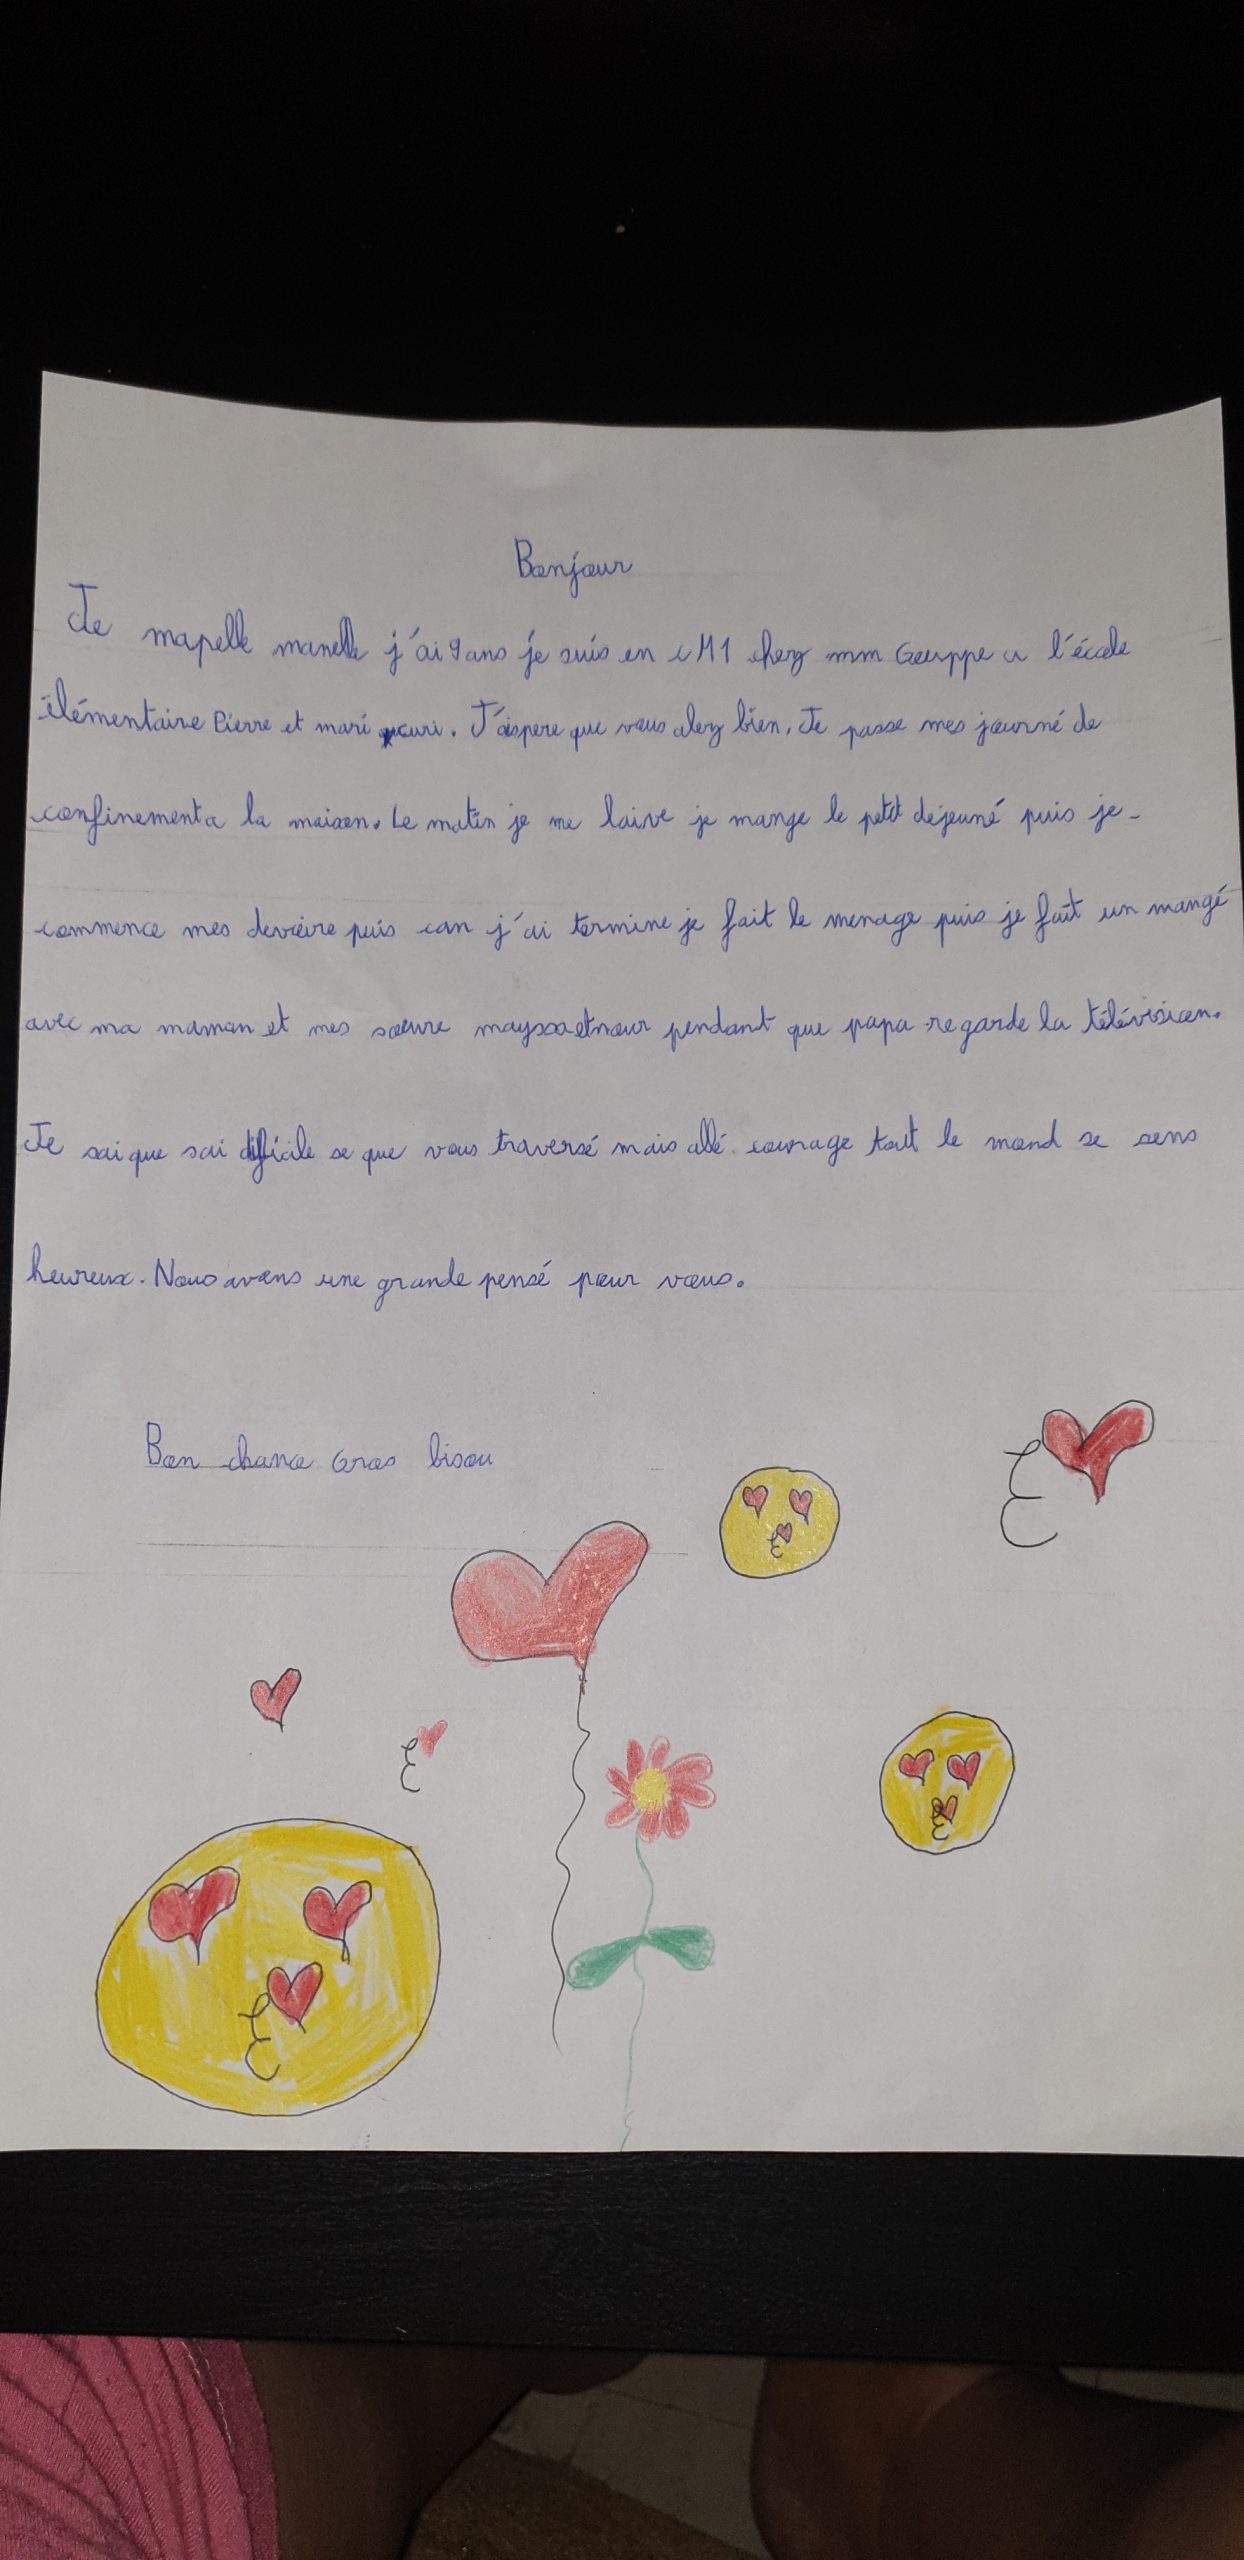 Bonjour
Je mapelle manelle j'ai 9 ans je suis en CM1 chez mm Geuppe a l'école
élémentaire Pierre et mari curi. J'éspere que vous alez bien. Je passe mes journé de
confinement a la maison. Le matin je me laive je mange le petit dejeuné puis je
commence mes devoire puis can j'ai termine je fait le menage puis je fait un mangé
avec ma maman et mes sœure mayssa et nour pendant que papa regarde la télévision.
Je sai que sai dificile se que vous traversé mais allé courage tout le mond se sens
heureux. Nous avons une grande pensé pour vous.
Bon chance Gros bisou